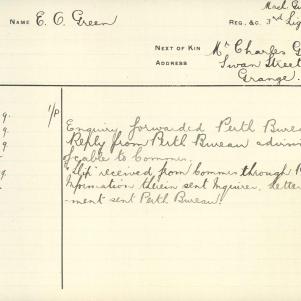 Mach. Gu
NAME E. O. Green
REG. &C. 3rd Lig
NEXT OF KIN Mr Charles G
ADDRESS Swan Street
Grange.
9. 1/P Enquiry forwarded Perth Burea
9. Reply from Perth Bureau advisi
9. cable to Commis.
"Slip" received from Commis through
9. Information therein sent Inquirer. Letter
ment sent Perth Bureau.